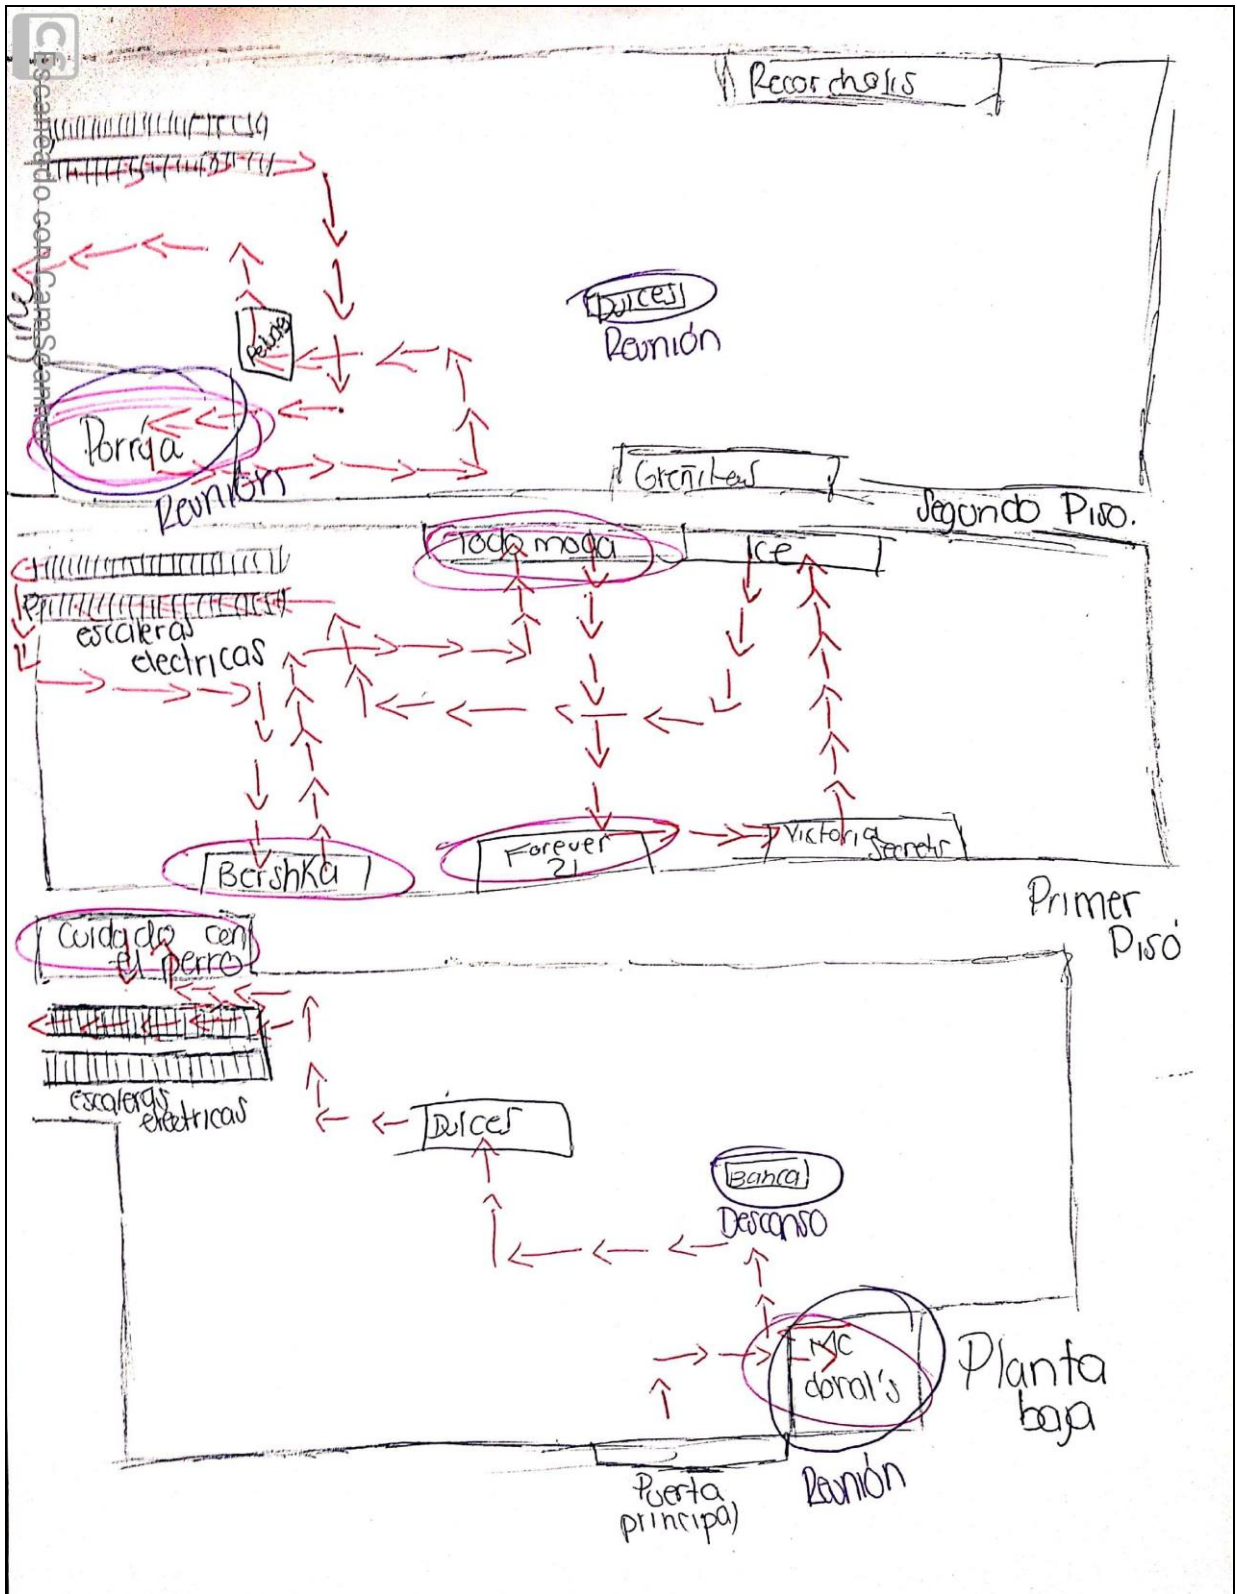 CS
Escaneado con CamScanner
Recorcholis
Dulces
Reunión
Porrúa
Reunión
Segundo Piso.
Todo moda
Ice
escaleras
electricas
Bershka
Forever
21
Victoria
Secrets
Primer
Pisó
Cuidado con
el perro
escaleras
electricas
Dulces
Banca
Descanso
Mc
donal's
Reunión
Planta
baja
Puerta
principal